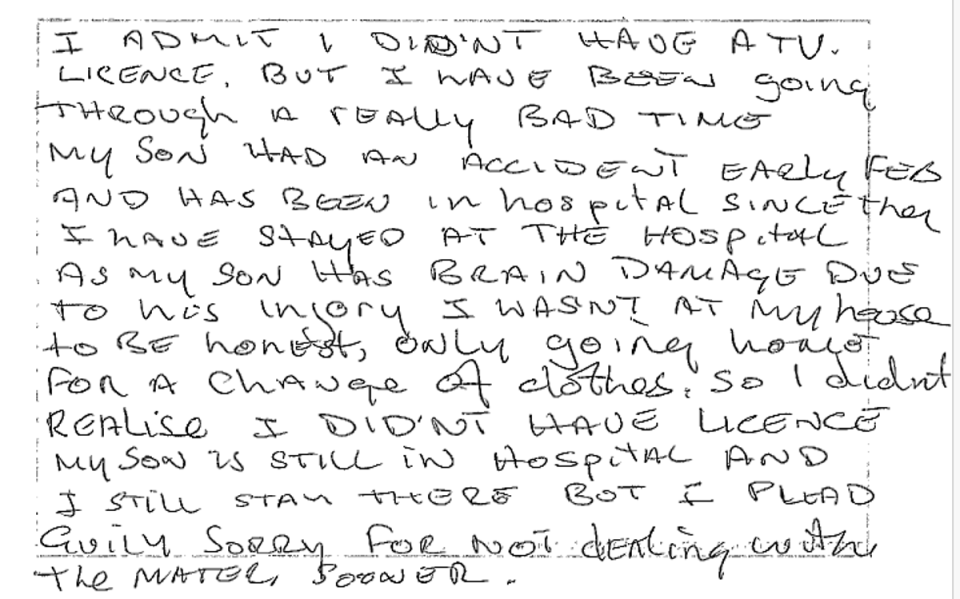 I ADMIT I DIDN'T HAVE A TV.
LICENCE. BUT I HAVE BEEN going
THROUGH A REALLY BAD TIME
MY SON HAD AN ACCIDENT EARLY FEB
AND HAS BEEN in hospital SINCE then
I HAVE STAYED AT THE HOSPITAL
AS MY SON HAS BRAIN DAMAGE DUE
to his injory I WASN'T AT MY house
to BE honest, only going home
FOR A CHANGE Of clothes. SO I didn't
REALISE I DID'NT HAVE LICENCE
MY SON IS STILL IN HOSPITAL AND
I STILL STAY THERE BOT I PLEAD
GUILY SORRY FOR NOT dEALing with
the MATER, SOONER.